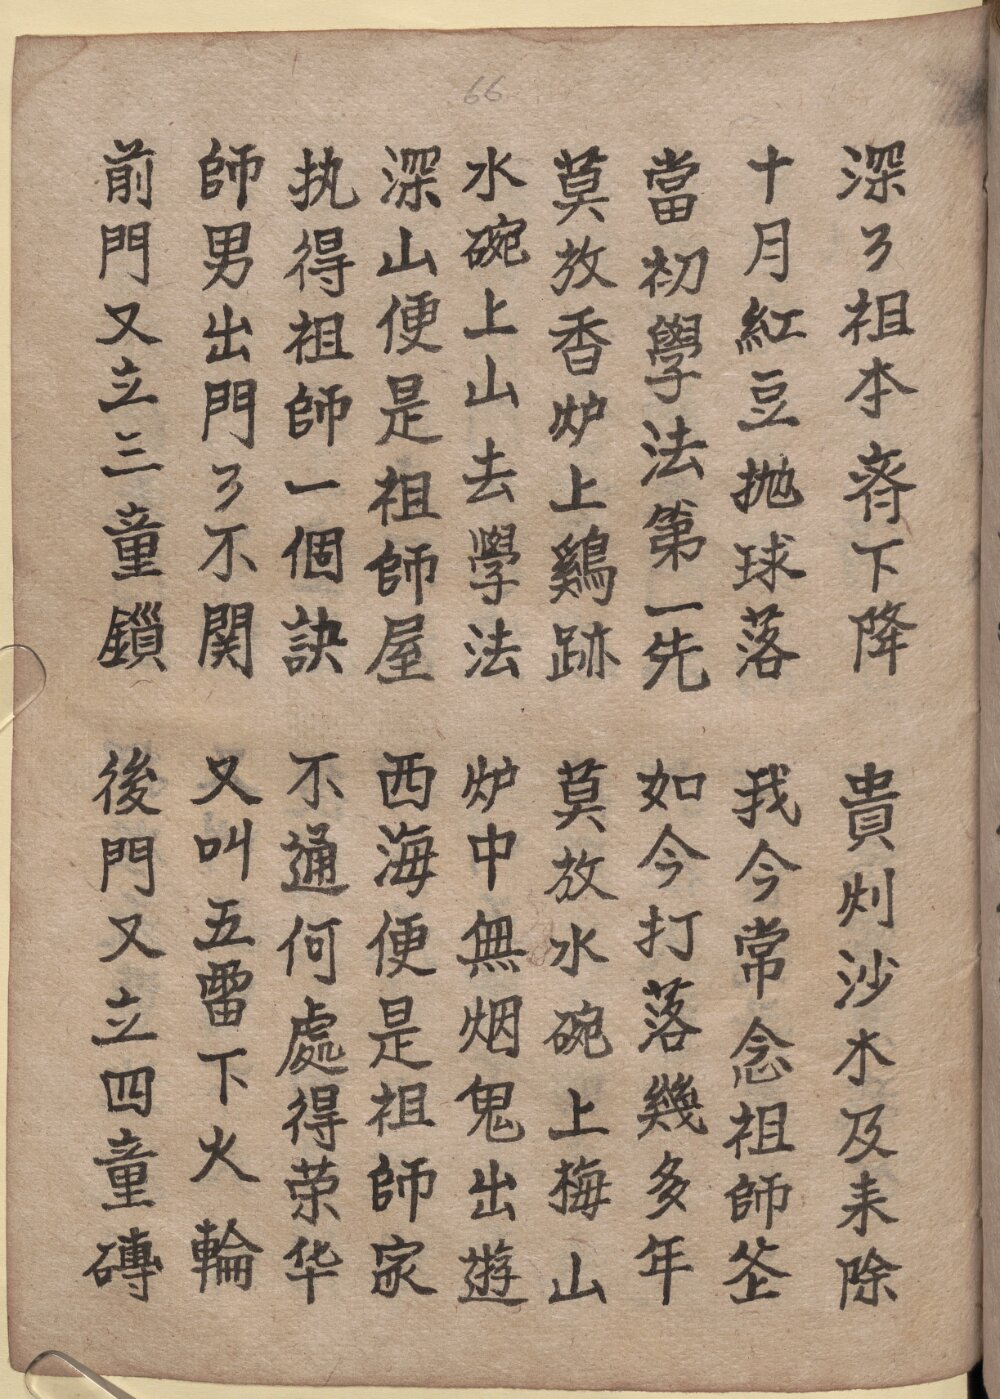 66
深々祖本齋下降 貴州沙水及未除
十月紅豆抛球落 我今常念祖師坛
當初學法第一先 如今打落幾多年
莫放香炉上鷄跡 莫放水碗上梅山
水碗上山去學法 炉中無烟鬼出遊
深山便是祖師屋 西海便是祖師家
执得祖師一個訣 不通何處得荣华
師男出門々不関 又叫五雷下火輪
前門又立三童鎖 後門又立四童磚